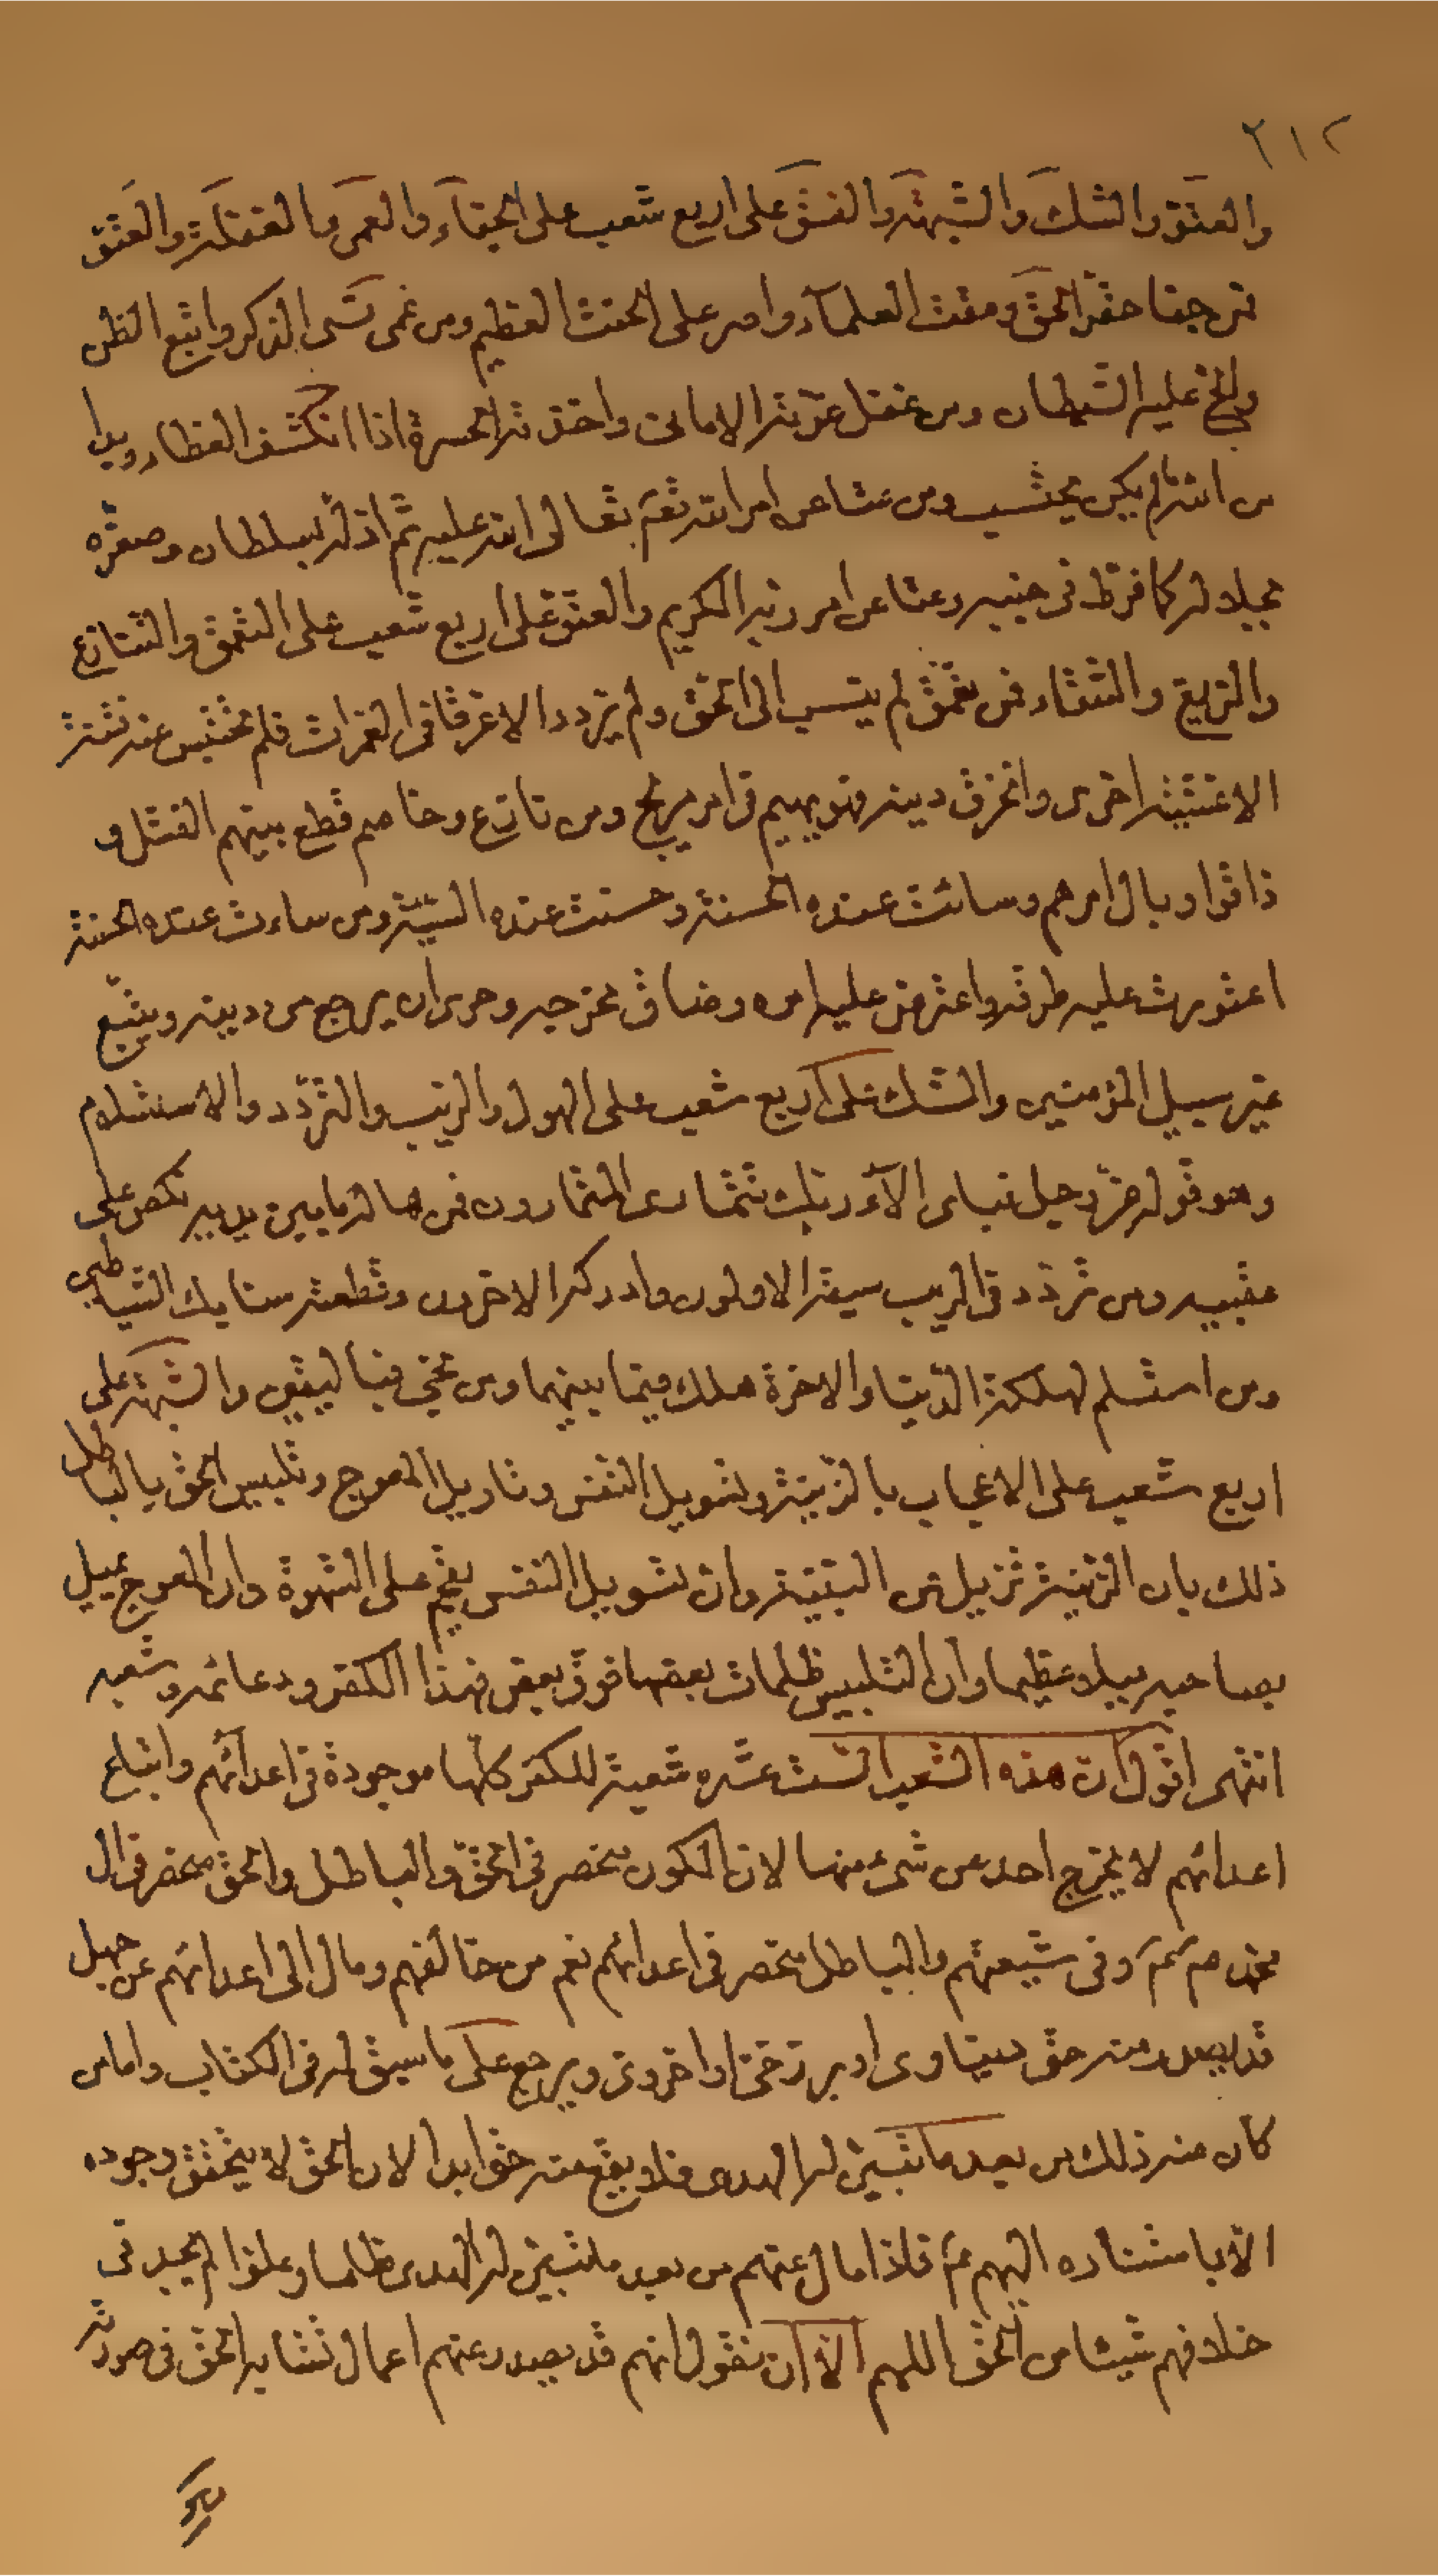 ٢١٢
والعتوّ والشكّ والشبهة والفسق على اربع شعب على الجفاء والعمى والغفلة والعتوّ
فمن جفا حقّر الحق ومقت العلماء واصر على الحنث العظيم ومن عمى نسى الذكر واتبع الظن
والح عليه الشيطان ومن غفل غرّته الامانى واخذته الحسرة اذا انكشف الغطاء وبدا
من الله ما لم يكن يحتسب ومن عتا عن امر الله تعالى الله عليه ثم اذله بسلطانه وصغّره
بجلاله كما فرّط فى جنبه وعتا عن امر ربه الكريم والعتوّ على اربع شعب على التعمق والتنازع
والزيغ والشقاق فمن تعمّق لم ينسب الى الحق ولم يزدد الا غرقا فى الغمرات فلم تحتبس عنه فتنة
الا غشيته اخرى وانخرق دينه فهو يهيم فى امر مريج ومن نازع وخاصم قطع بينهم الفشل و
ذاقوا وبال امرهم وسائت عنده الحسنة وحسنت عنده السيئة ومن ساءت عنده الحسنة
اعتورت عليه طرقه واعترض عليه امره وضاق مخرجه وحرى ان يرجع من دينه ويتبع
غير سبيل المؤمنين والشك على اربع شعب على الهول والريب والتردد والاستسلام
وهو قوله عز وجل فباى الآء ربك تتمارى المتمارون فمن هاله ما بين يديه نكص على
عقبيه ومن تردد فى الريب سبقه الاولون وادركه الاخرون وقطعته سنابك الشياطين
ومن استسلم لهلكة الدنيا والاخرة هلك فيما بينهما ومن نجى فباليقين والشبهة على
اربع شعب على الاعجاب بالزينة وتسويل النفس وتاويل العوج وتلبيس الحق بالباطل
ذلك بان الزينة تزيل عن البينة وان تسويل النفس يقحم على الشهوة وان العوج يميل
بصاحبه ميلا عظيما وان التلبيس ظلمات بعضها فوق بعض فهذا الكفر ودعائمه وشعبه
انتهى اقول ان هذه الشعب الست عشره شعبة للكفر كلها موجودة فى اعدائهم واتباع
اعدائهم لا يخرج احد عن شىء منها لان الكون منحصر فى الحق والباطل والحق منحصر فى ال
محمد ص ع م وفى شيعتهم والباطل منحصر فى اعدائهم نعم من خالفهم ومال الى اعدائهم عن جهل
قد يصدر منه حق دنياوى او برزخى او اخروى ويرجع على ما سبق له فى الكتاب واما من
كان منه ذلك من بعد ما تبين له الهدى فلا يقع منه حق ابدا لان الحق لا يتحقق وجوده
الا باستناده اليهم ع فاذا مال عنهم من بعد ما تبين له الهدى ظلما وعلوا لم يجد فى
خلافهم شيئا من الحق اللهم الا ان نقول انهم قد يصدر عنهم اعمال تشابه الحق فى صورته